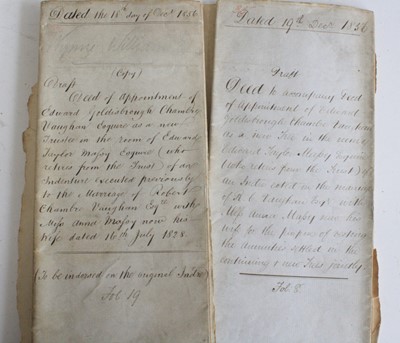 Dated the 18th day of Decr. 1856
(Copy)
Draft
Deed of Appointment of
Edward Goldesbrough Chambre
Vaughan Esquire as a new
Trustee in the room of Edward
Taylor Massy Esquire (who
retires from the Trust) of an
Indenture executed previously
to the Marriage of Robert
Chambre Vaughan Esqre. with
Miss Anna Massy now his
Wife dated 14th July 1828.
(To be indorsed on the original Indre)
Fol 19
Dated 19th Decr. 1856
Draft
Deed to accompany Deed
of Appointment of Edward
Goldesbrough Chambre Vaughan
as a new Tree in the room of
Edward Taylor Massy Esquire
(who retires from the Trust) of
an Indre on the marriage
of R. C. Vaughan Esqr. with
Miss Anna Massy now his
wife for the purpose of vesting
the annuities settled in the
continuing & new Trees jointly
Fol 8.